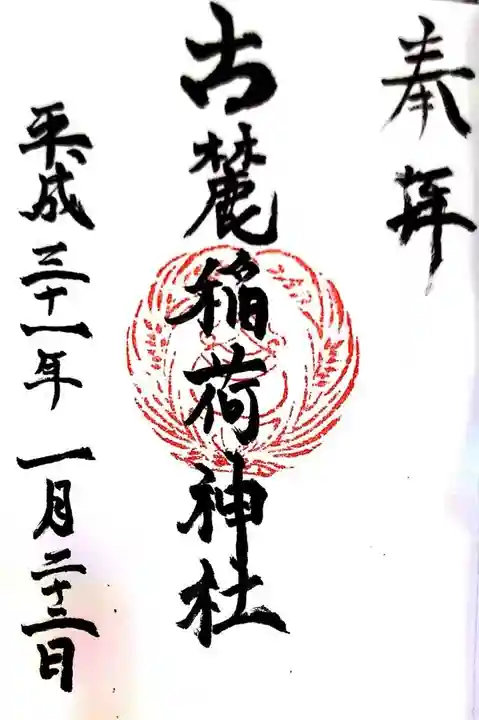 奉拝
古麓稲荷神社
平成三十一年 一月二十三日